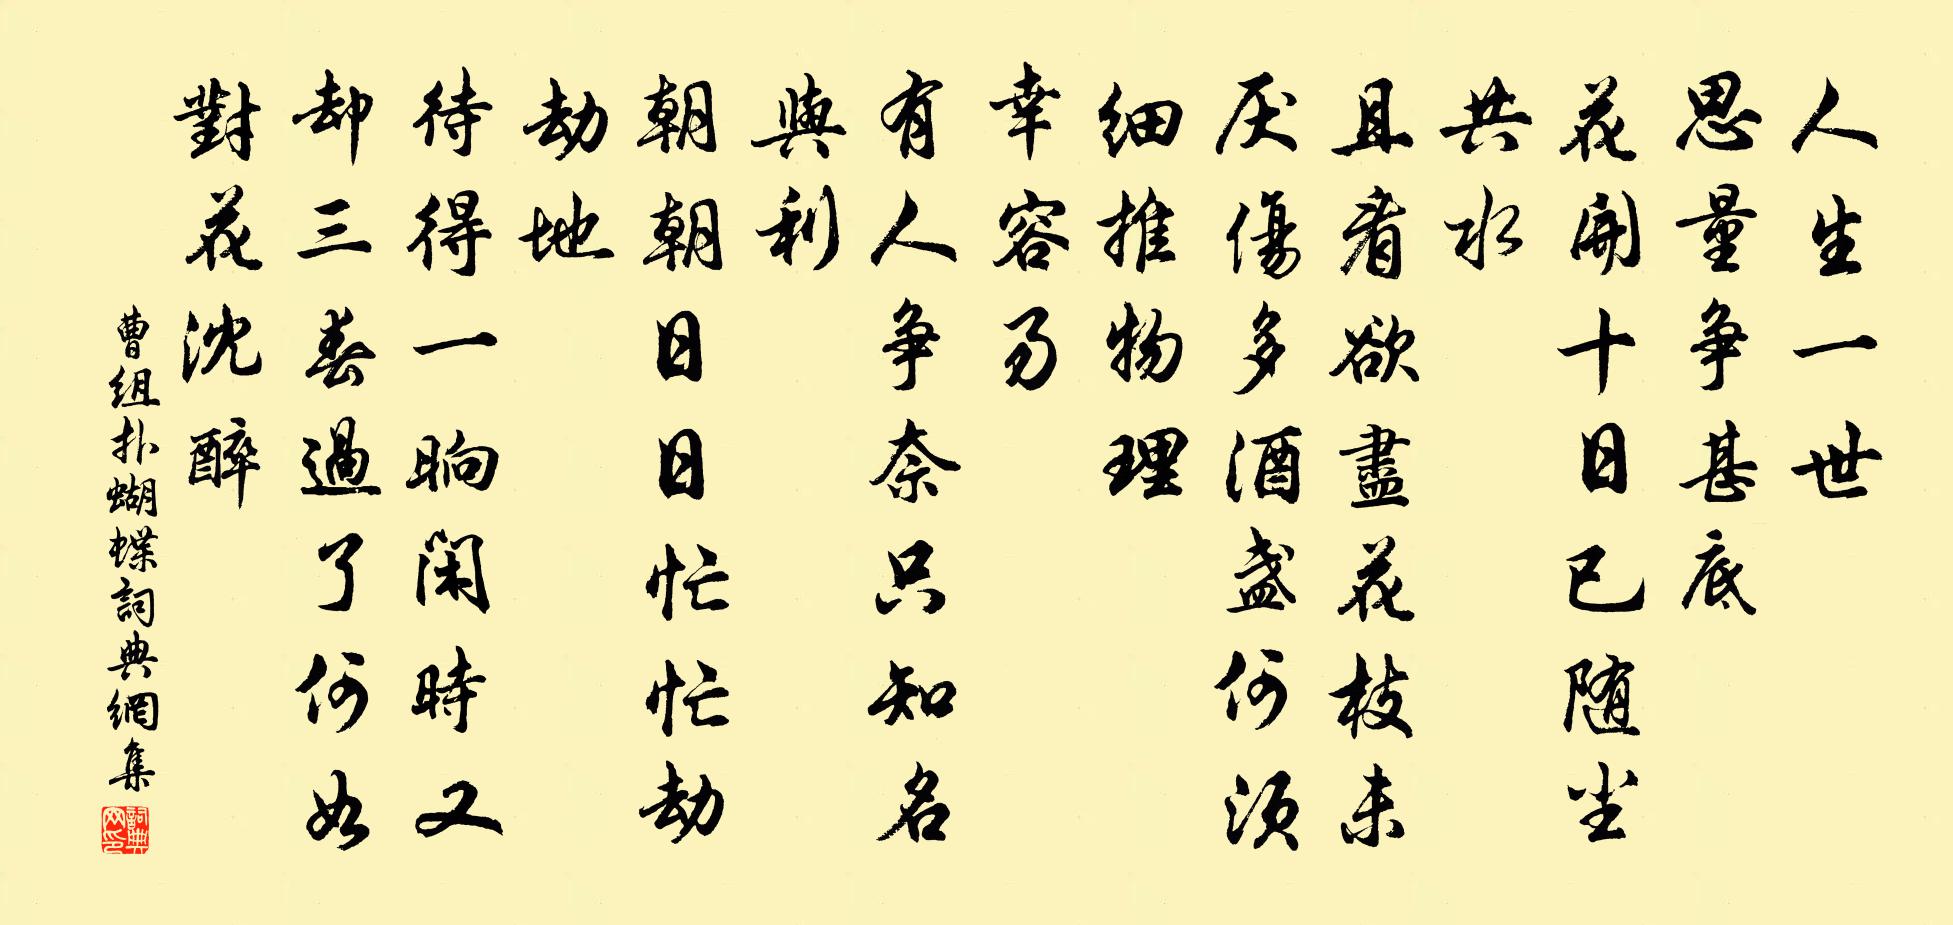 人生一世
思量争甚底
花開十日已随尘
共水
且看欲盡花枝未
厌傷多酒盏何須
细推物理
幸容易
有人争奈只知名
與利
朝朝日日忙忙劫
劫地
待得一晌閑時又
却三春過了何如
對花沈醉
曹组扑蝴蝶詞典網集
詞典网印